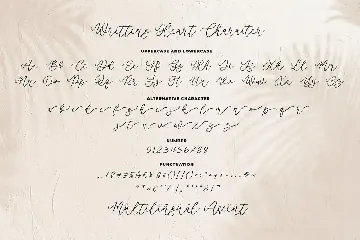 Writters Heart Character
UPPERCASE AND LOWERCASE
Aa Bb Cc Dd Ee Ff Gg Hh Ii Jj Kk Ll Mm
Nn Oo Pp Qq Rr Ss Tt Uu Vv Ww Xx Yy Zz
ALTERNATIVE CHARACTER
a b c d e f g h i j k l m n o p q r
s t u v w x y z
NUMBER
0123456789
PUNCTUATION
Multilingual Accent